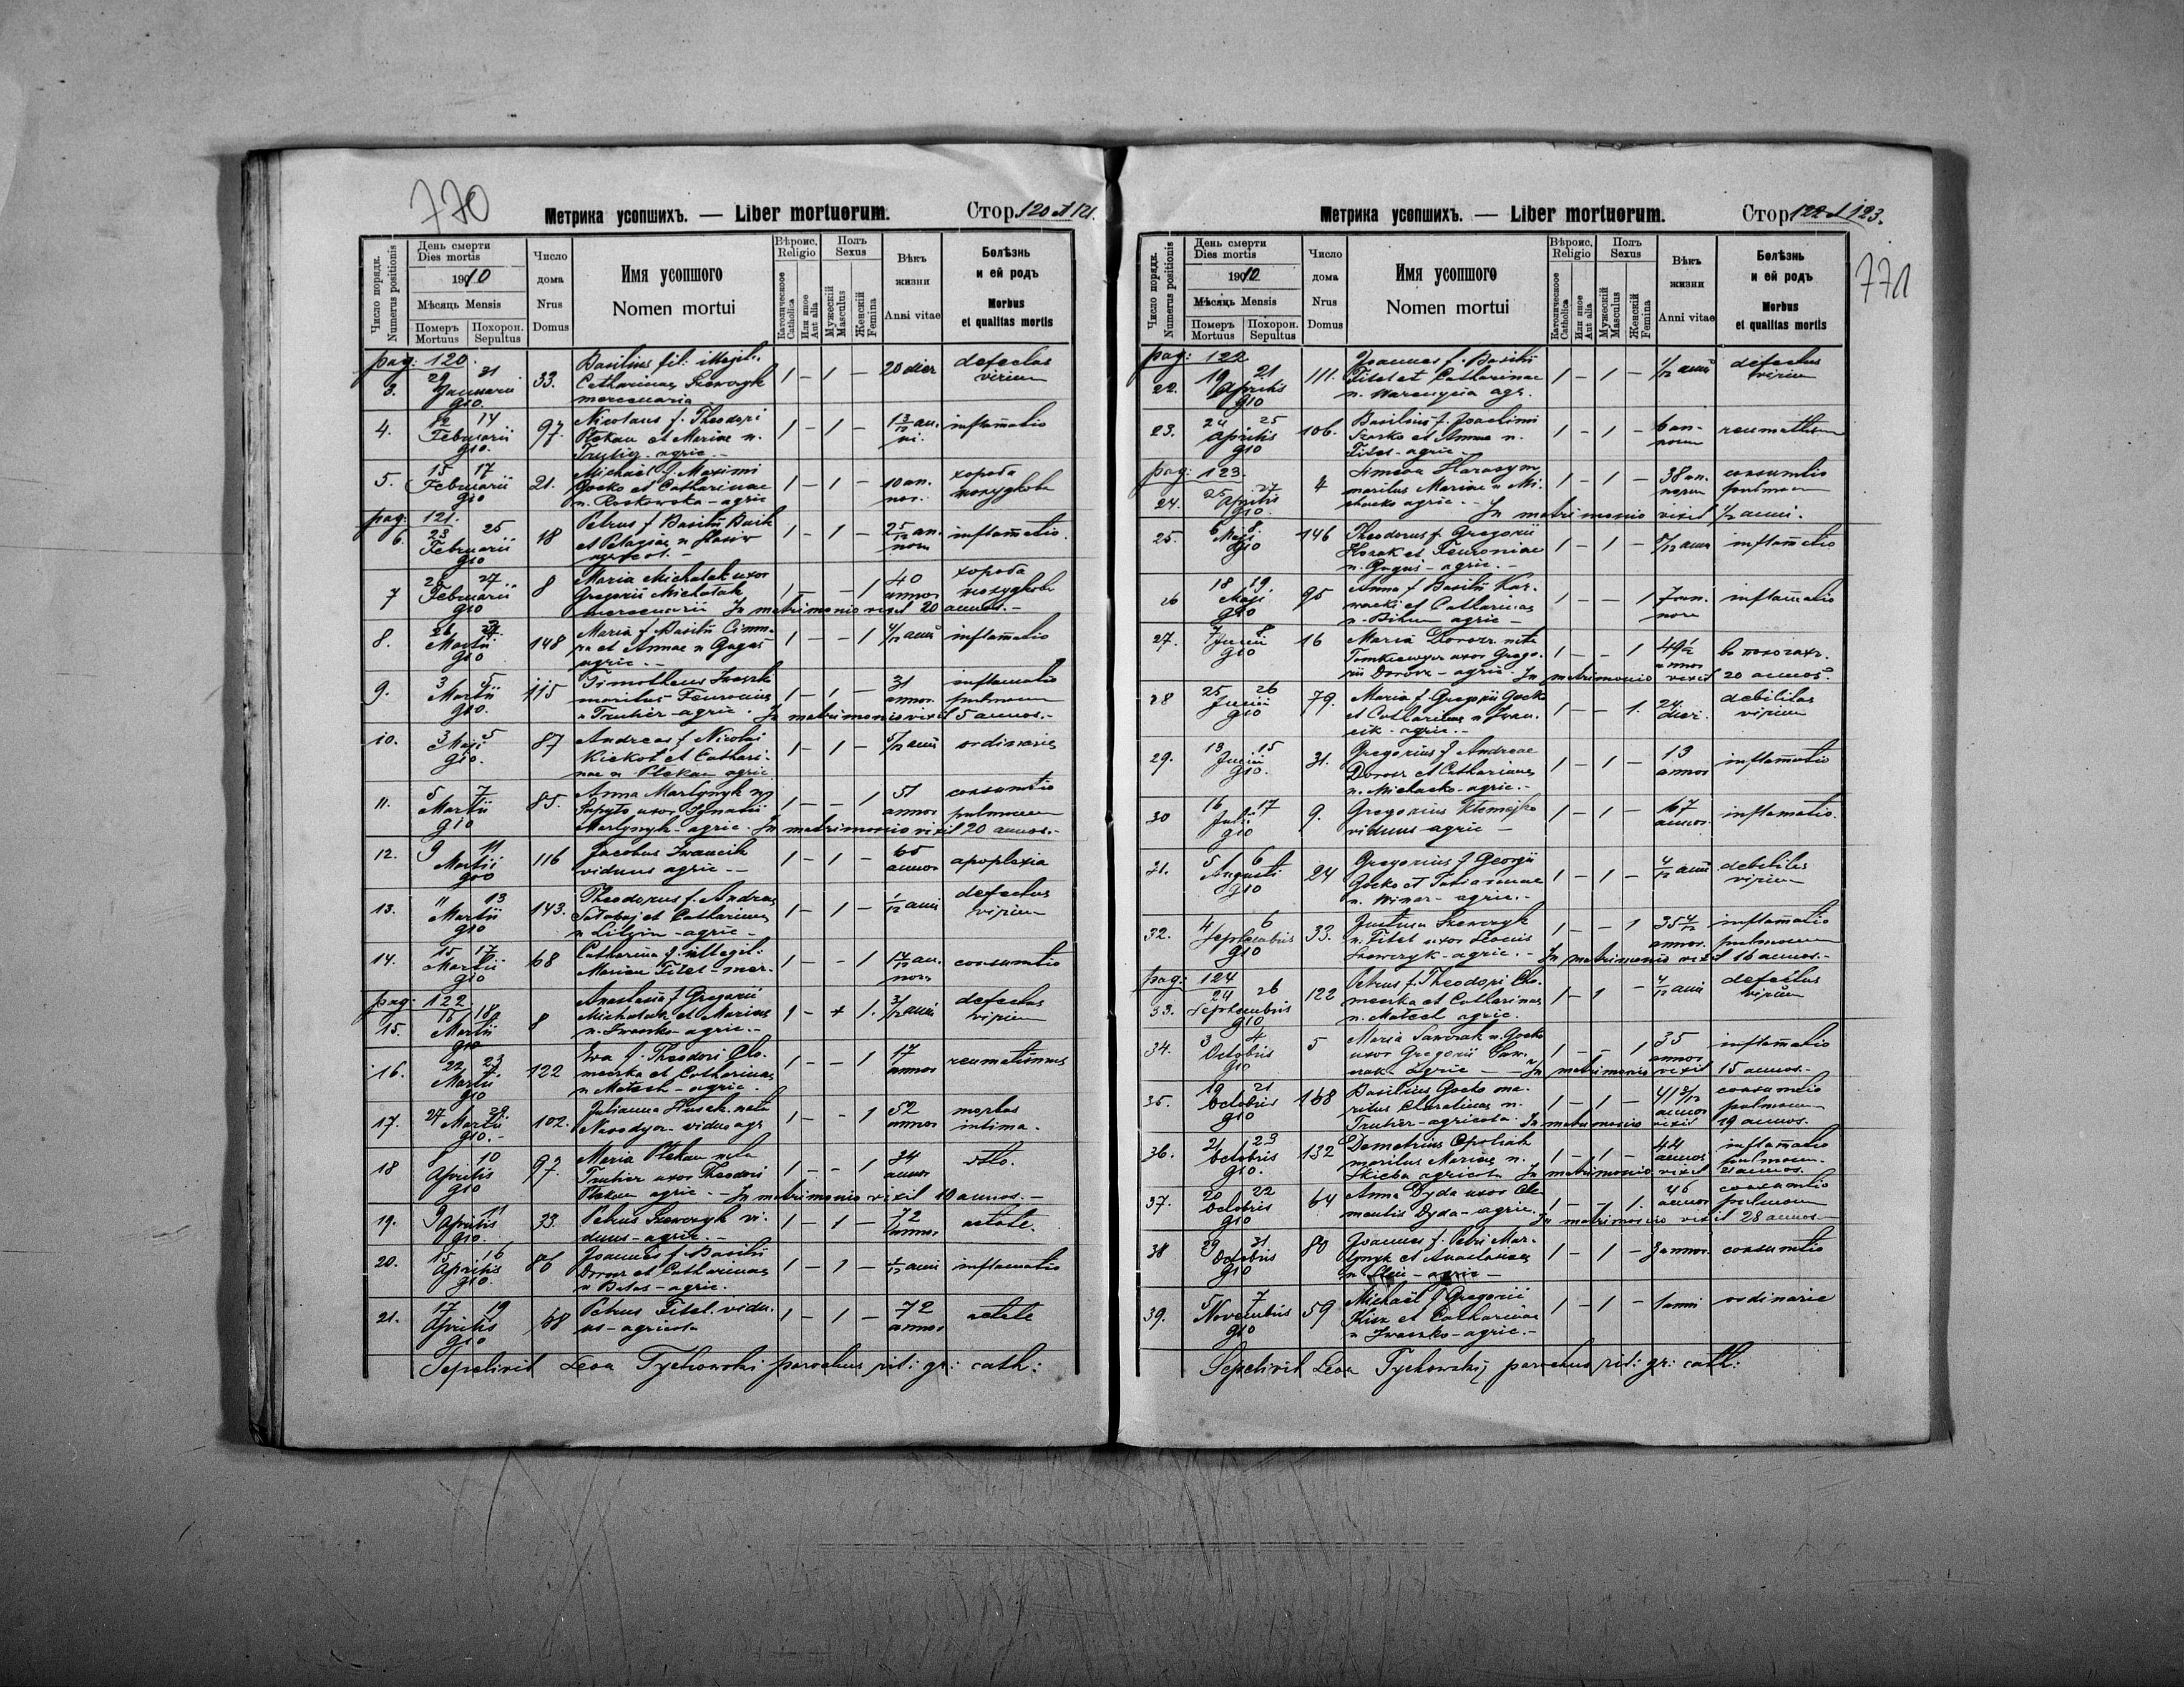 770
Метрика усопшихъ. — Liber mortuorum.
Стор. 120 et 121.
Число порядк.
Numerus positionis
День смерти
Dies mortis
1910
Мѣсяць Mensis
Померъ
Mortuus
Похорон.
Sepultus
Число
дома
Nrus
Domus
Имя усопшого
Nomen mortui
Вѣроис.
Religio
Католическое
Catholica
Или иное
Aut alia
Полъ
Sexus
Мужескій
Masculus
Женскій
Femina
Вѣкъ
жизни
Anni vitae
Болѣзнь
и ей родъ
Morbus
et qualitas mortis
pag: 120.
3. 29 31 Januarii 910. 33. Basilius fil: illegit. Catharinae Szewczyk mercenaria 1 – 1 – 20 dier defectus virium
4. 12 14 Februarii 910. 97. Nicolaus f. Theodori Ptekan et Mariae n. Trutier - agric. - 1 – 1 – 1 3/12 an. ni. inflamatio
5. 15 17 Februarii 910 21. Michaël f. Maximi Gocko et Catharinae n. - agric 1 – 1 – 10 an. nor. хороба
pag: 121.
6. 23 25 Februarii 910 18 Petrus f Basilii et Pelagiae n 1 – 1 – 2 5/12 an. norum inflamatio.
7 27 Februarii 910 8 Maria Michalak uxor Gregorii Michalak mercenarii 1 – – 1 40 annos хороба
In matrimonio vixit 20 annos. -
8. 26 Martii 910 148 Maria f Basilii et Annae n Gagus agric. - 1 – – 1 4/12 anni inflamatio
9. 3 5 Martii 910. 115 Timotheus Iwaszko maritus Feuroniae n Trutier - agric. 1 – 1 – 31 annor. inflamatio pulmonum
In matrimonio vixit 5 annos. -
10. 3 5 Maji 910. 87 Andreas f Nicolai Kickot et Cathari- nae n Ptekan agric 1 – 1 – 5/12 anni ordinaria
11. 5 7 Martii 910 85. Anna Martynyk n uxor Ignatii Martynyk - agric. 1 – – 1 51 annos consumtio pulmonum
In matrimonio vixit 20 annos. -
12. 9 11 Martii 116 Jacobus Iwancik viduus agric - 1 – 1 – 65 annor apoplexia
13. 11 13 Martii 910 143. Theodorus f. Andreae et Catharinae n - agric - 1 – 1 – 1/12 anni defectus virium
14. 15 17 Martii 910 68 Catharina f. illegit: Mariae Fitel - mer. 1 – – 1 1 7/12 an. norum consumtio
pag: 122
15. 16 18 Martii 910 8 Anastasia f Gregorii Michalak et Mariae n. Iwaszko - agric. - 1 – + 1. 3/12 anni defectus virium
16. 22 Martii 910 122 Eva f. Theodori et Catharinae n Matsch - agric. 1 – – 1 17 annos reumatismus
17. 27 29 Martii 910. - 102. Julianna nata - vidua agr 1 – – 1 52 annos morbus intima.
18 8 10 Aprilis 910 97. Maria Ptekan nata Trutier uxor Theodori Ptekan agric. - 1 – – 1 34 annos
In matrimonio vixit 10 annos. -
19. 9 11 Aprilis 910. 33. Petrus Szewczyk vi- duus - agric. - 1 – 1 – 72 annos. aetate.
20. 15 16 Aprilis 910. 86 Joannes f. Basilii Dorosz et Catharinae n - agric. 1 – 1 – 1/12 anni inflamatio
21. 17 19 Aprilis 910 68 Petrus Fitel. vidu- us - agricola 1 – 1 – 72 annos aetate
Sepelivit Leon Tychowski parochus rit: gr: cath:
Метрика усопшихъ. — Liber mortuorum.
Стор. 122 et 123.
771
Число порядк.
Numerus positionis
День смерти
Dies mortis
1910
Мѣсяць Mensis
Померъ
Mortuus
Похорон.
Sepultus
Число
дома
Nrus
Domus
Имя усопшого
Nomen mortui
Вѣроис.
Religio
Католическое
Catholica
Или иное
Aut alia
Полъ
Sexus
Мужескій
Masculus
Женскій
Femina
Вѣкъ
жизни
Anni vitae
Болѣзнь
и ей родъ
Morbus
et qualitas mortis
pag: 122
22. 19 21 Aprilis 910 111. Joannes f. Basilii Fitel et Catharinae n. agr. 1 – 1 – 1/12 anni defectus virium
23. 24 25 Aprilis 910 106. Basilius f. Joachimi et Annae n. Fitel - agric. - 1 – 1 – 6 an- norum reumatismus
pag: 123.
24. 25 27 Aprilis 910. 4 Simeon Harasym maritus Mariae n Mi- chacko agric. - 1 – 1 – 38 an. norum consumtio pulmonum
In matrimonio vixit 1/2 anni.
25. 6 8. Maji 910 146 Theodorus f Gregorii Kozak et Feuroniae n. Gagus - agric. - 1 – 1 – 8/12 anni inflamatio
26 18 19. Maji 910 95 Anna f Basilii et Catharinae n. agric - 1 – – 1 7 an. norum inflamatio
27. 7 8 Junii 910 16 Maria Dorosz nata uxor Grego- rii Dorosz - agric. 1 – – 1 49 1/2 annos
In matrimonio vixit 20 annos.
28 25 26 Junii 910 79. Maria f. Gregorii Gocko et Catharinae n Iwan- cik - agric. - 1 – – 1. 24 dier. debilitas virium
29. 13 15 Junii 910. 31. Gregorius f Andreae Dorosz et Catharinae n. Michacko - agric. - 1 – 1 – 13 annos inflamatio
30 16 17 Julii 910 9. Gregorius viduus agric - 1 – 1 – 67 annos. inflamatio.
31. 5 6 Augusti 910 24 Gregorius f Georgii Gocko et n. - agric. - 1 – 1 – 4/12 anni debilitas virium
32. 4 6 Septembris 910 33. Justina Szewczyk n. Fitel uxor Leonis Szewczyk - agric. - 1 – – 1 35 4/12 annos. inflamatio pulmonum
In matrimonio vixit 16 annos. -
pag: 124
33. 24 26 Septembris 910 122 Petrus f. Theodori et Catharinae n. Matsch agric. 1 – 1 – 4/12 anni defectus virium
34. 3 4 Octobris 910 5 Maria Sawczak n. Gocko uxor Gregorii agric - 1 – – 1 35 annos inflamatio
In matrimonio vixit 15 annos. -
35. 19 21 Octobris 910 168 Basilius Gocko ma- ritus n. Trutier - agricola. 1 – 1 – 41 annos consumtio pulmonum
In matrimonio vixit 19 annos.
36. 21 23 Octobris 910. 132 Demetrius maritus Mariae n. Skieba agricola 1 – 1 – 44 annos inflamatio pulmonum.
In matrimonio vixit 21 annos.
37. 20 22 Octobris 910 64 Anna Dyda uxor Cle- mentis Dyda - agric. 1 – – 1. 46 annor consumtio pulmonum
In matrimonio vixit 28 annos -
38 31 Octobris 910 80 Joannes f. Petri Mar- tynyk et Anastasiae n - agric - 1 – 1 – 3 annor. consumtio
39. 5 7 Novembris 910 59 Michaël f Gregorii et Catharinae n Iwaszko - agric. - 1 – 1 – 1 anni ordinaria
Sepelivit Leon Tychowski, parochus rit: gr: cath: